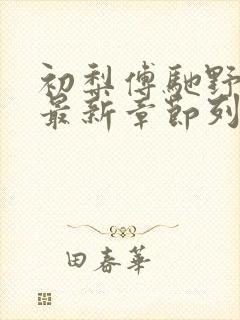 初梨傅馳野
最新章節列
田春華